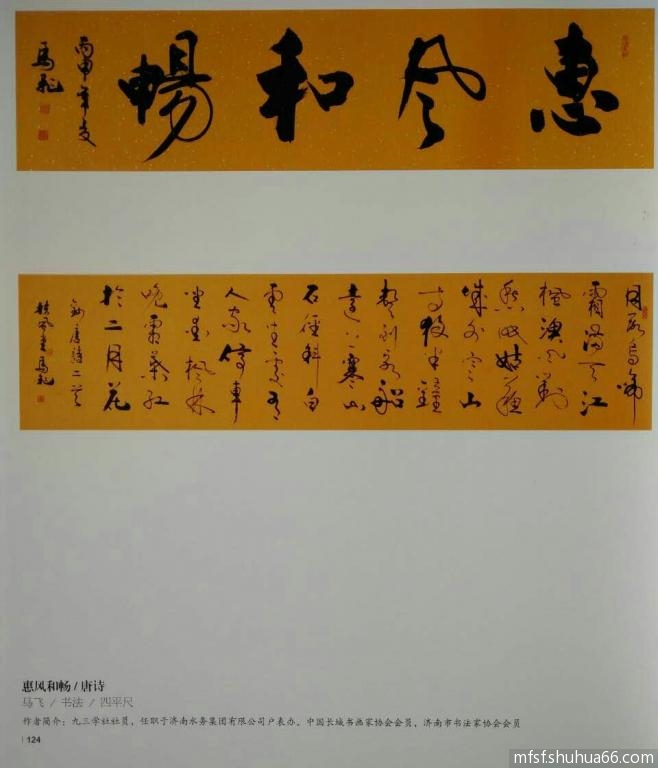 惠风和暢
丙申年
馬飛
月落烏啼
霜滿天江
楓漁火對
愁眠姑蘇
城外寒山
寺夜半鐘
聲到客船
遠上寒山
石徑斜白
雲生處有
人家停車
坐愛楓林
晚霜葉紅
於二月花
錄唐詩二首
馬飛
惠风和畅 / 唐诗
马飞 / 书法 / 四平尺
作者简介：九三学社社员，任职于济南水务集团有限公司户表办，中国长城书画家协会会员，济南市书法家协会会员
124
mfsf.shuhua66.com